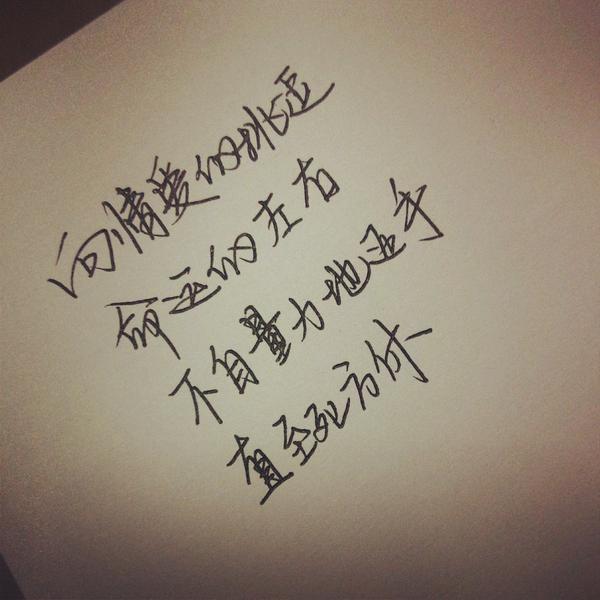 向情爱的挑逗
命运的左右
不自量力地还手
直至死方休